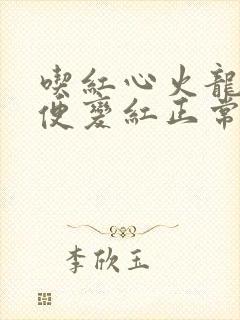 喫紅心火龍
便變紅正常
李欣玉